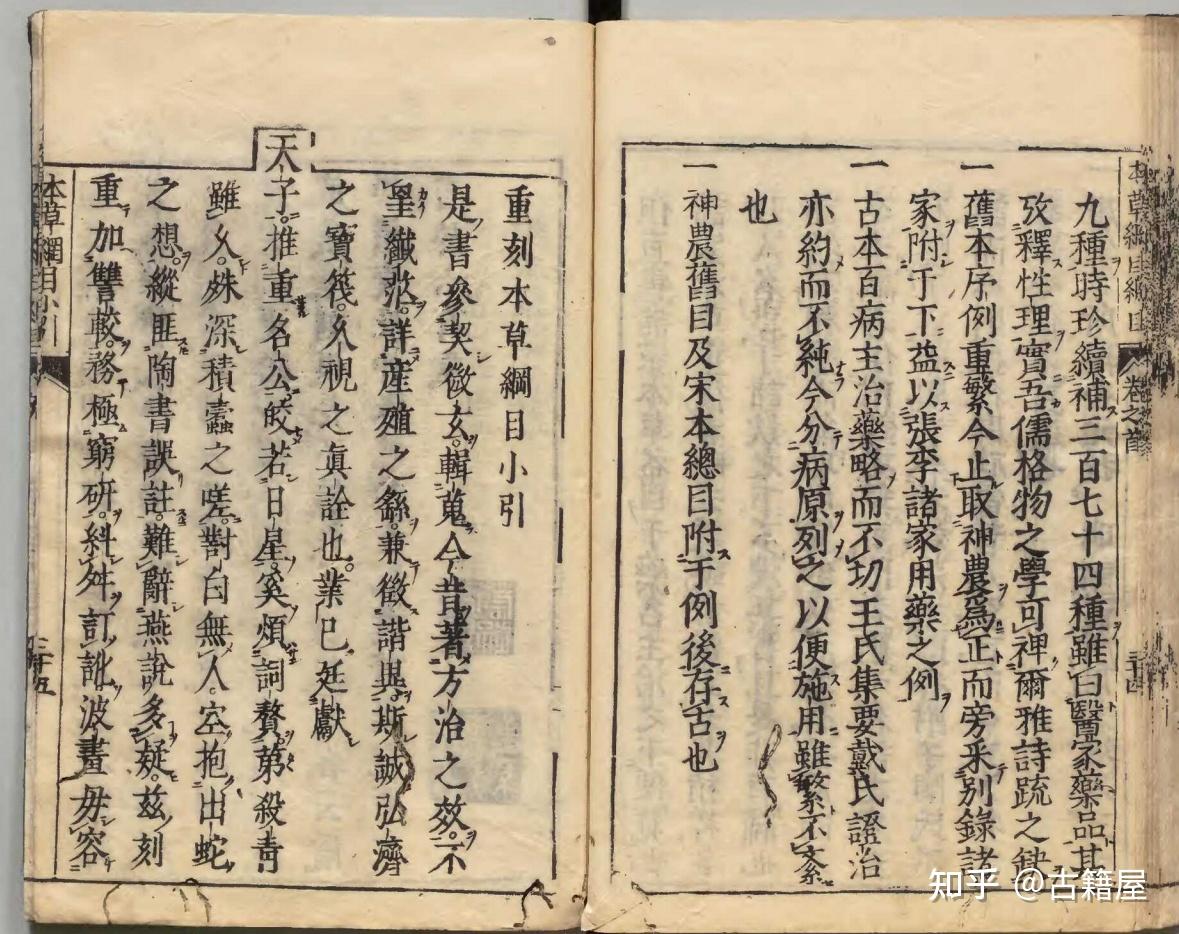 本草綱目綱目 卷之首 三十四
九種時珍續補三百七十四種雖曰醫家藥品其
攷釋性理實吾儒格物之學可裨爾雅詩疏之缺
一 舊本序例重繁今止取神農爲正而旁采別錄諸
家附于下益以張李諸家用藥之例
一 古本百病主治藥略而不切王氏集要戴氏證治
亦約而不純今分病原列之以便施用雖繁不紊
也
一 神農舊目及宋本總目附于例後存古也
重刻本草綱目小引
是書參契微玄輯蒐今昔著方治之效不
罣纖茫詳產殖之繇兼徵諧與斯誠弘濟
之寶筏久視之眞詮也業已廷獻
天子推重名公皎若日星奚煩詞贅第殺青
雖久殊深積蠹之嗟對白無人空抱出蛇
之想縱匪陶書誤註難辭燕說多疑茲刻
重加讐較務極窮研糾舛訂訛波畫毋容
本草綱目小引 三十五
知乎 @古籍屋